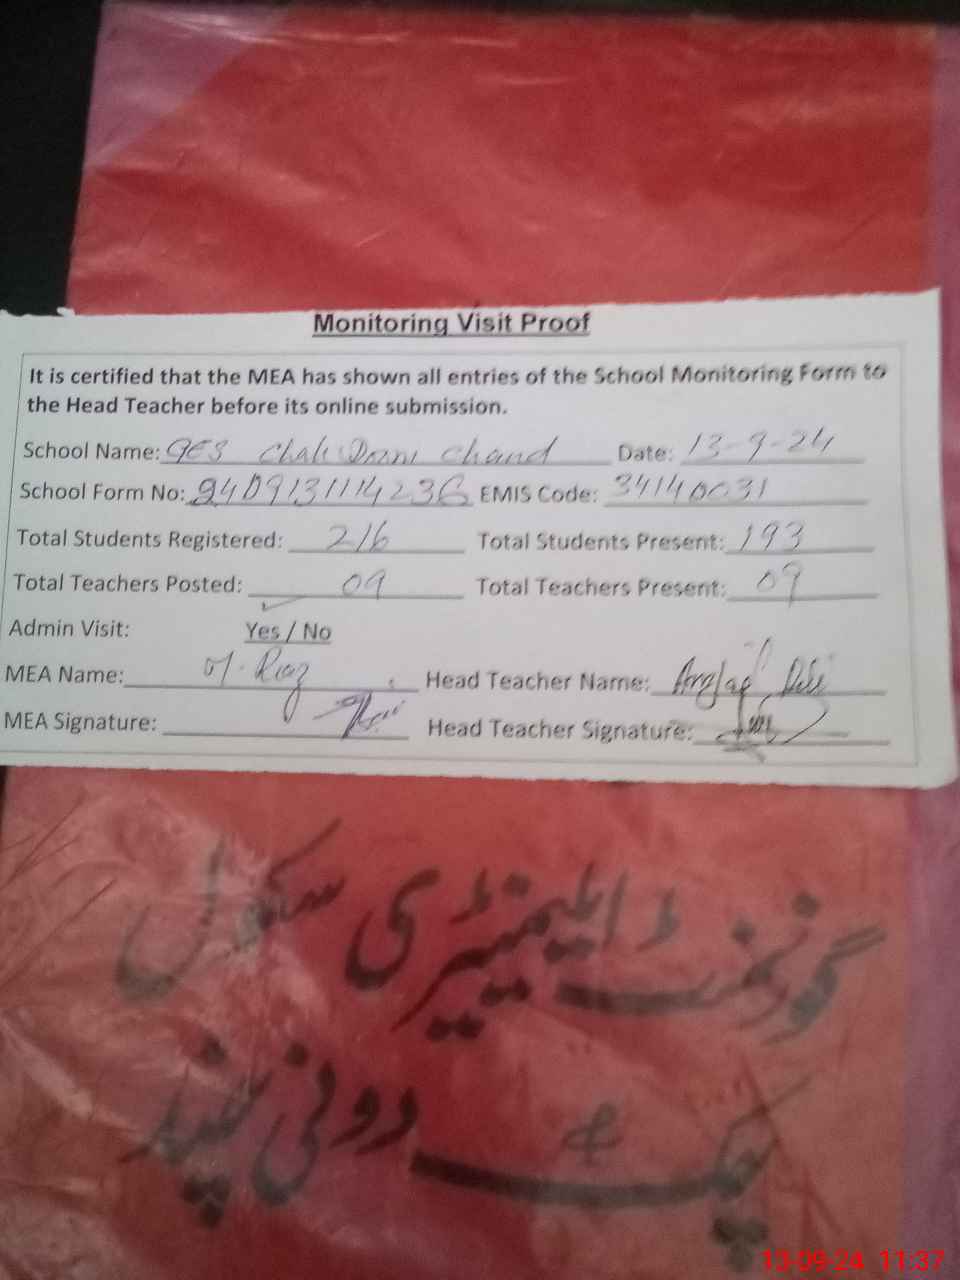 Monitoring Visit Proof
It is certified that the MEA has shown all entries of the School Monitoring Form to
the Head Teacher before its online submission.
School Name: GES Chak Doni Chand Date: 13-9-24
School Form No: 2409131114236 EMIS Code: 34140031
Total Students Registered: 216 Total Students Present: 193
Total Teachers Posted: 09 Total Teachers Present: 09
Admin Visit: Yes / No
MEA Name: M. Riaz Head Teacher Name:
MEA Signature: Head Teacher Signature:
گورنمنٹ ایلیمنٹری سکول
چک دونی چند
13-09-24 11:37